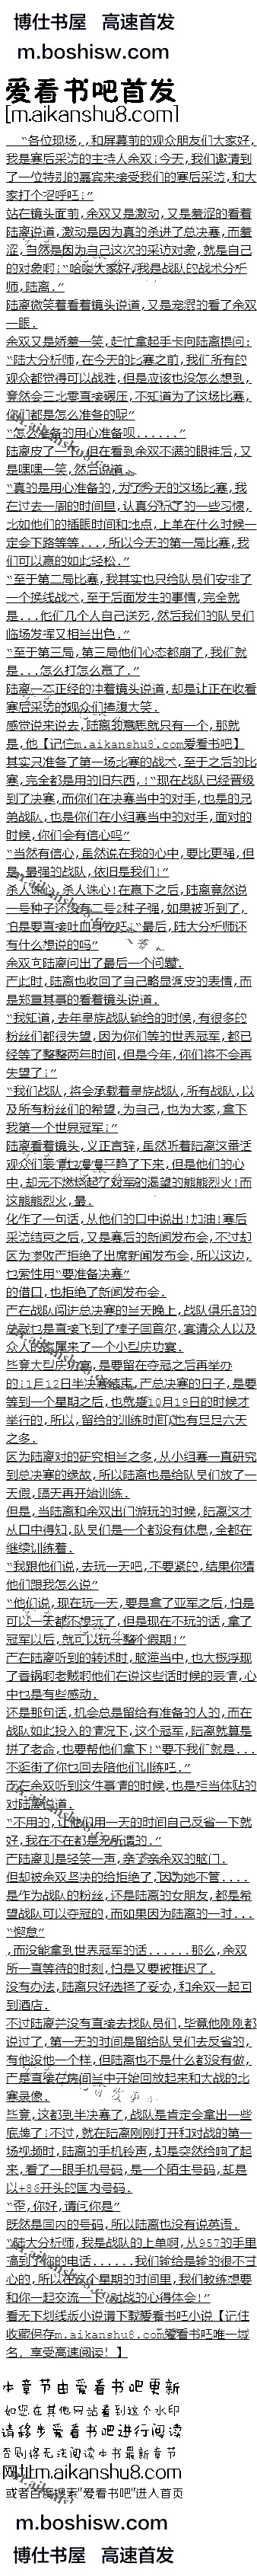 博仕书屋 高速首发
m.boshisw.com
爱看书吧首发
[m.aikanshu8.com]
“各位现场,,和屏幕前的观众朋友们大家好,
我是赛后采访的主持人余双!今天,我们邀请到
了一位特别的嘉宾来接受我们的赛后采访,和大
家打个招呼吧!”
站在镜头面前,余双又是激动,又是羞涩的看着
陆离说道,激动是因为真的杀进了总决赛,而羞
涩,自然是因为自己这次的采访对象,就是自己
的对象啊!“哈喽大家好,我是战队的战术分析
师,陆离.”
陆离微笑着看着镜头说道,又是宠溺的看了余双
一眼.
余双又是娇羞一笑,赶忙拿起手卡向陆离提问:
“陆大分析师,在今天的比赛之前,我们所有的
观众都觉得可以战胜,但是应该也没怎么想到,
竟然会三比零直接碾压,不知道为了这场比赛,
他们都是怎么准备的呢”
“怎么准备的用心准备呗......”
陆离皮了一下,但在看到余双不满的眼神后,又
是嘿嘿一笑,然后说道.
“真的是用心准备的,为了今天的这场比赛,我
在过去一周的时间里,认真分析了的一些习惯,
比如他们的插眼时间和地点,上单在什么时候一
定会下路等等...,所以今天的第一局比赛,我
们可以赢的如此轻松.”
“至于第二局比赛,我其实也只给队员们安排了
一个换线战术,至于后面发生的事情,完全就
是...他们几个人自己送死,然后我们的队员们
临场发挥又相当出色.”
“至于第三局,第三局他们心态都崩了,我们就
是...怎么打怎么赢了.”
陆离一本正经的冲着镜头说道,却是让正在收看
赛后采访的观众们捧腹大笑.
感觉说来说去,陆离的意思就只有一个,那就
是,他【记住m.aikanshu8.com爱看书吧】
其实只准备了第一场比赛的战术,至于之后的比
赛,完全都是用的旧东西,!“现在战队已经晋级
到了决赛,而你们在决赛当中的对手,也是的兄
弟战队,也是你们在小组赛当中的对手,面对的
时候,你们会有信心吗”
“当然有信心,虽然说在我的心中,要比更强,但
是,最强的战队,依旧是我们!”
杀人诛心,杀人诛心!在赢下之后,陆离竟然说
一号种子还没有二号2种子强,如果被听到了,
怕是要直接吐血身亡吧.“最后,陆大分析师还
有什么想说的吗”
余双向陆离问出了最后一个问题.
而此时,陆离也收回了自己略显调皮的表情,而
是郑重其事的看着镜头说道.
“我知道,去年皇族战队输给的时候,有很多的
粉丝们都很失望,因为你们等的世界冠军,都已
经等了整整两年时间,但是今年,你们将不会再
失望了!”
“我们战队,将会承载着皇族战队,所有战队,以
及所有粉丝们的希望,为自己,也为大家,拿下
我第一个世界冠军!”
陆离看着镜头,义正言辞,虽然听着陆离这番话
观众们表情也慢慢平静了下来,但是他们的心
中,却无不燃烧起了对冠军的渴望的熊熊烈火!而
这熊熊烈火,最.
化作了一句话,从他们的口中说出!加油!赛后
采访结束之后,又是赛后的新闻发布会,不过却
因为惨败而拒绝了出席新闻发布会,所以这边,
也索性用“要准备决赛”
的借口,也拒绝了新闻发布会.
而在战队闯进总决赛的当天晚上,战队俱乐部的
总裁也是直接飞到了棒子国首尔,宴请众人以及
众人的家属来了一个小型庆功宴.
毕竟大型庆功宴,是要留在夺冠之后再举办
的!1月12日半决赛结束,而总决赛的日子,是要
等到一个星期之后,也就是10月19日的时候才
举行的,所以,留给的训练时间,也有足足六天
之多.
因为陆离对的研究相当之多,从小组赛一直研究
到总决赛的缘故,所以陆离也是给队员们放了一
天假,隔天再开始训练.
但是,当陆离和余双出门游玩的时候,陆离这才
从口中得知,队员们是一个都没有休息,全都在
继续训练着.
“我跟他们说,去玩一天吧,不要紧的,结果你猜
他们跟我怎么说”
“他们说,现在玩一天,要是拿了亚军之后,怕是
可以一天都不想玩了,但是现在不玩的话,拿了
冠军以后,就可以玩一整个假期!”
而在陆离听到的转述时,脑海当中,也大概浮现
了香锅啊老贼啊他们在说这些话时候的表情,心
中也是有些感动.
还是那句话,机会总是留给有准备的人的,而在
战队如此投入的情况下,这个冠军,陆离就算是
拼了老命,也要帮他们拿下!“要不我们就是...
不逛街了你也回去陪他们训练吧.”
而在余双听到这件事情的时候,也是相当体贴的
对陆离说道.
“不用的,让他们用一天的时间自己反省一下就
好,我在不在都是无所谓的.”
而陆离则是轻笑一声,亲了亲余双的脑门.
但却被余双坚决的给拒绝了,因为她不管....
是作为战队的粉丝,还是陆离的女朋友,都是希
望战队可以夺冠的,而如果因为陆离的一时...
“懈怠”
,而没能拿到世界冠军的话......那么,余双
所一直等待的时刻,怕是又要被推迟了.
没有办法,陆离只好选择了妥协,和余双一起回
到酒店.
不过陆离并没有直接去找队员们,毕竟他刚刚都
说过了,第一天的时间是留给队员们去反省的,
有他没他一个样,但陆离也不是什么都没有做,
而是直接在房间当中开始回放起来和大战的比
赛录像.
毕竟,这都到半决赛了,战队是肯定会拿出一些
底牌了!不过,就在陆离刚刚打开和对战的第一
场视频时,陆离的手机铃声,却是突然给响了起
来,看了一眼手机号码,是一个陌生号码,却是
以+86开头的国内号码.
“歪,你好,请问你是”
既然是国内的号码,所以陆离也没有说英语.
“陆大分析师,我是战队的上单啊,从957的手里
搞到了你的电话......我们输给是输的很不甘
心的,所以在这个星期的时间里,我们教练想要
和你一起交流一下,对战的心得体会!”
看无下划线版小说请下载爱看书吧小说【记住
收藏保存m.aikanshu8.com爱看书吧唯一域
名, 享受高速阅读! 】
本章节由爱看书吧更新
如您在其他网站看到这个水印
请移步爱看书吧进行阅读
否则将无法阅读本书最新章节
网址m.aikanshu8.com
或者百度搜索"爱看书吧"进入首页
m.boshisw.com
博仕书屋 高速首发